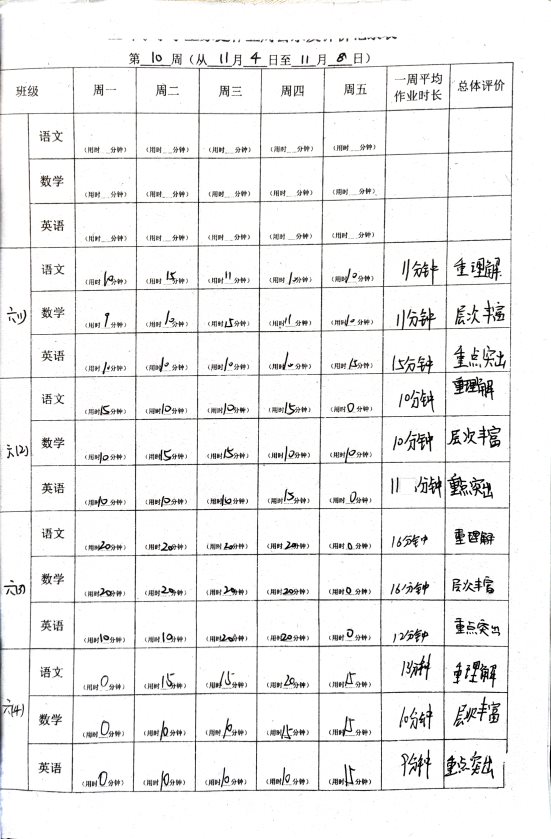 第 10 周（从 11 月 4 日至 11 月 8 日）
班级 周一 周二 周三 周四 周五 一周平均作业时长 总体评价
语文 （用时__分钟） （用时__分钟） （用时__分钟） （用时__分钟） （用时__分钟）
数学 （用时__分钟） （用时__分钟） （用时__分钟） （用时__分钟） （用时__分钟）
英语 （用时__分钟） （用时__分钟） （用时__分钟） （用时__分钟） （用时__分钟）
六(1) 语文 （用时10分钟） （用时15分钟） （用时11分钟） （用时10分钟） （用时10分钟） 11分钟 重理解
数学 （用时9分钟） （用时10分钟） （用时15分钟） （用时11分钟） （用时10分钟） 11分钟 层次丰富
英语 （用时10分钟） （用时10分钟） （用时10分钟） （用时10分钟） （用时15分钟） 15分钟 重点突出
六(2) 语文 （用时15分钟） （用时10分钟） （用时10分钟） （用时15分钟） （用时0分钟） 10分钟 重理解
数学 （用时10分钟） （用时15分钟） （用时15分钟） （用时10分钟） （用时10分钟） 10分钟 层次丰富
英语 （用时10分钟） （用时10分钟） （用时10分钟） （用时15分钟） （用时0分钟） 11分钟 重点突出
六(3) 语文 （用时20分钟） （用时20分钟） （用时20分钟） （用时20分钟） （用时0分钟） 16分钟 重理解
数学 （用时20分钟） （用时20分钟） （用时20分钟） （用时20分钟） （用时0分钟） 16分钟 层次丰富
英语 （用时10分钟） （用时10分钟） （用时20分钟） （用时20分钟） （用时0分钟） 12分钟 重点突出
六(4) 语文 （用时0分钟） （用时15分钟） （用时15分钟） （用时20分钟） （用时15分钟） 13分钟 重理解
数学 （用时0分钟） （用时10分钟） （用时10分钟） （用时15分钟） （用时15分钟） 10分钟 层次丰富
英语 （用时0分钟） （用时10分钟） （用时10分钟） （用时10分钟） （用时15分钟） 9分钟 重点突出